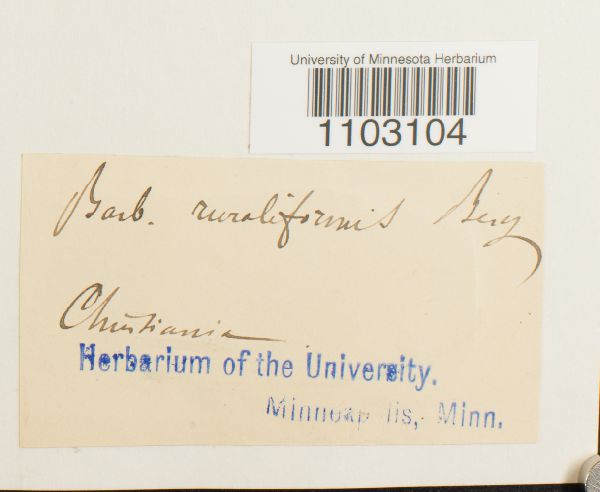 University of Minnesota Herbarium
1103104
Barb. ruraliformis Berg
Christiania
Herbarium of the University.
Minneapolis, Minn.